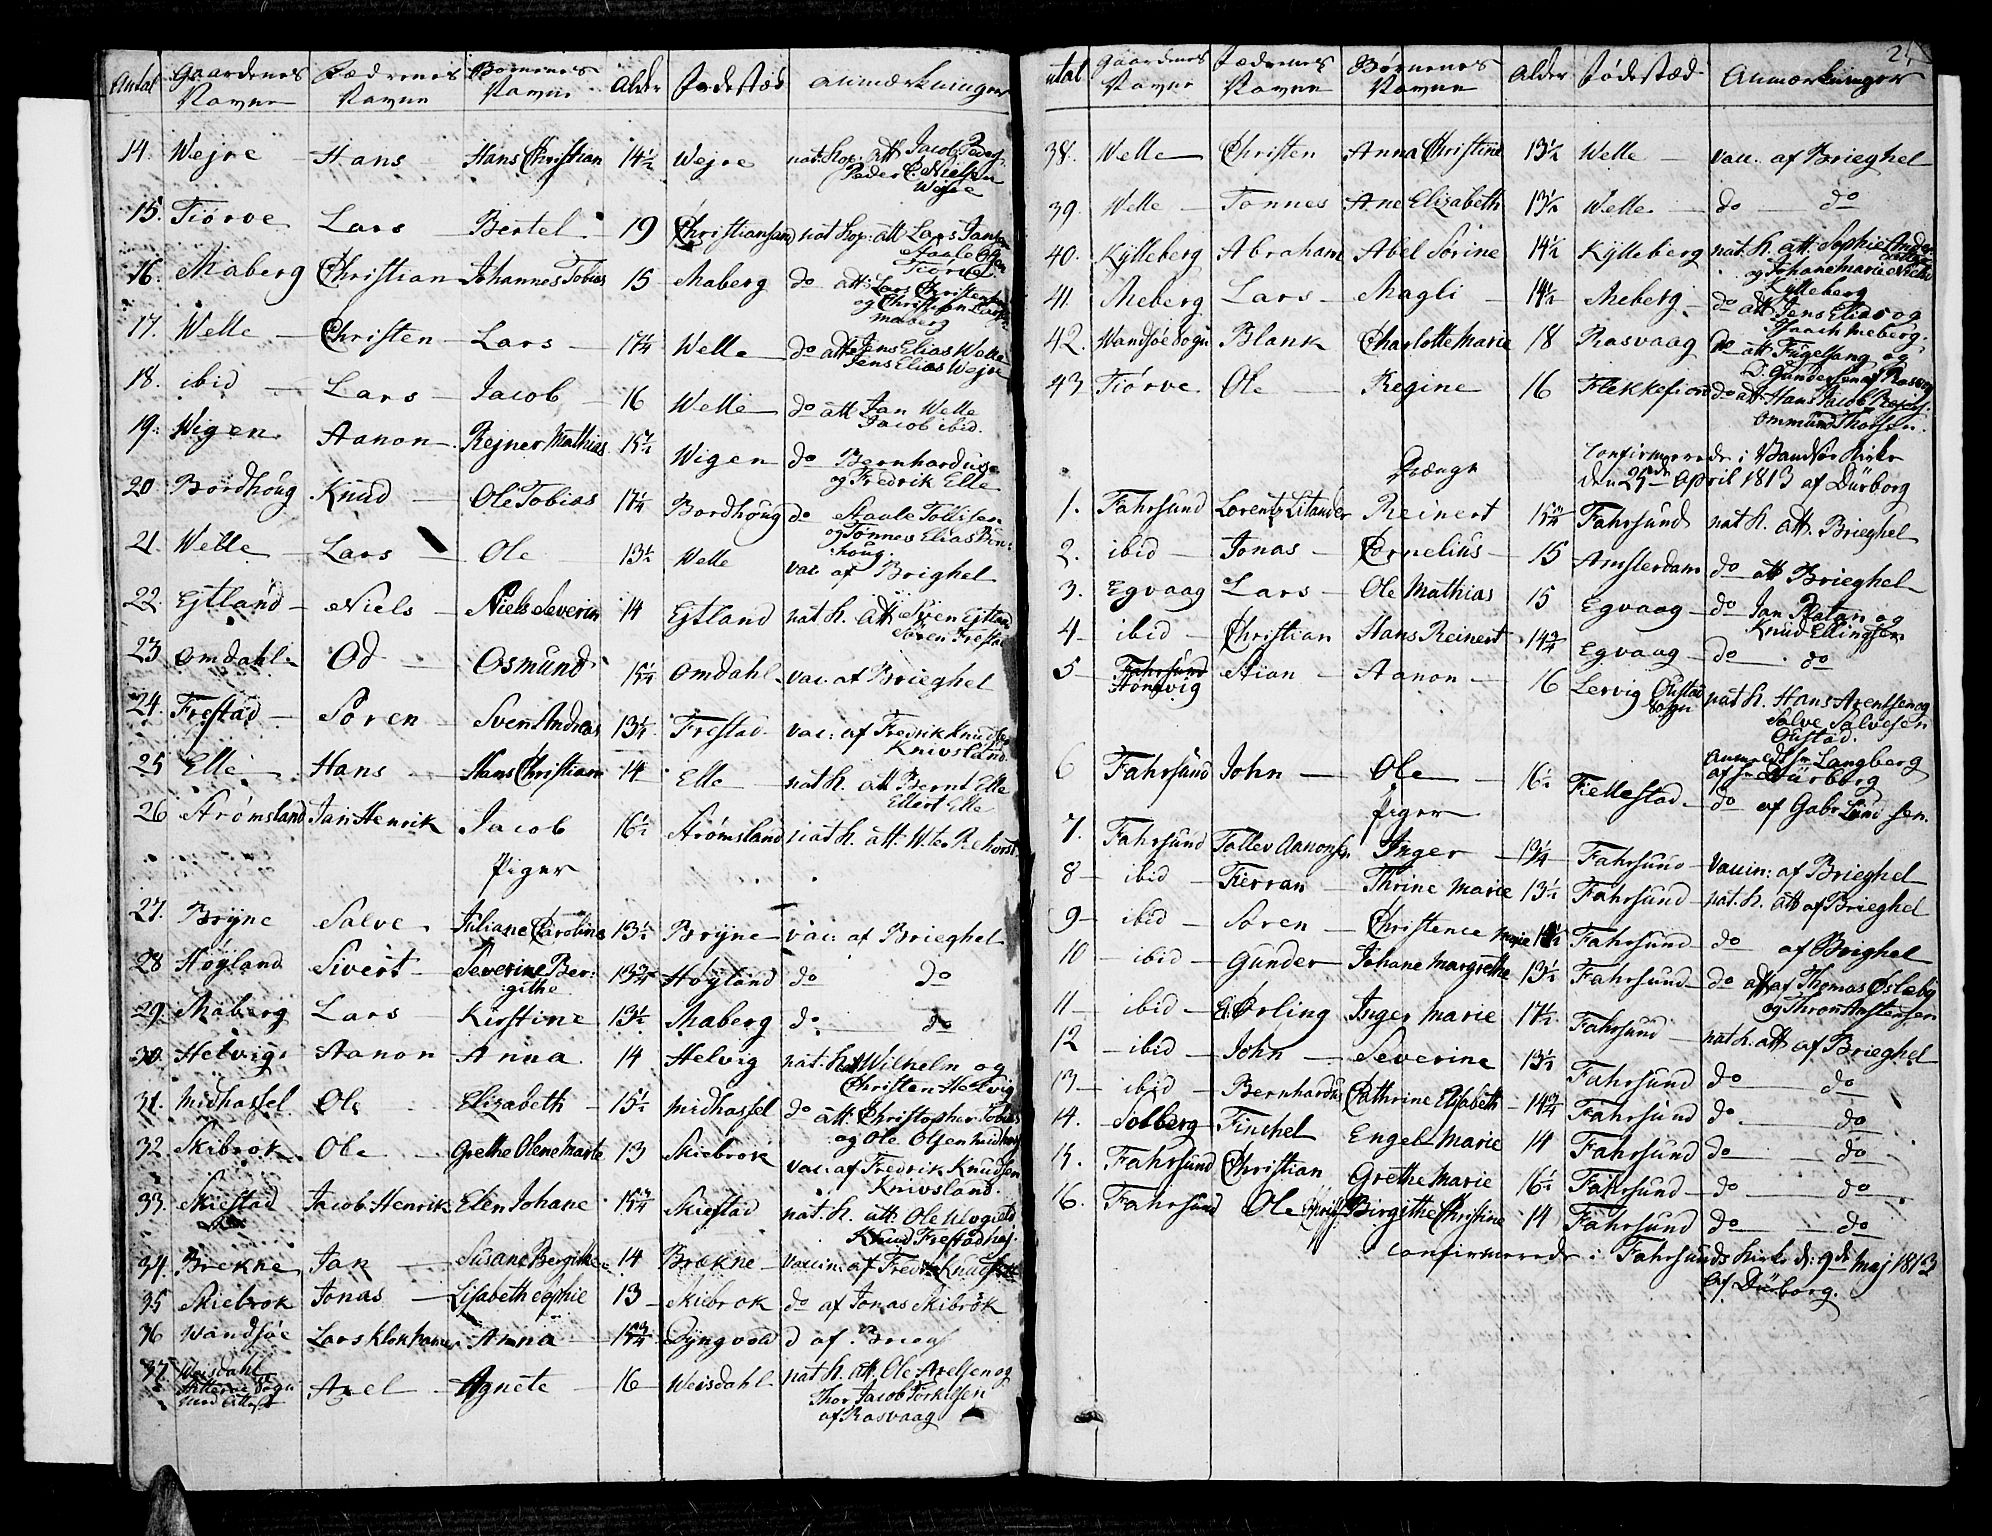 Antal Gaardenes Navne Fædrenes Navne Børnenes Navne Alder Fødestæd Anmærkninger
14. Wejre Hans Hans Christian 14½ Wejre nat. Kop. att. Jacob Peder
Peder C. Nielsen
Wejre
15. Tiørve Lars Bertel 19 Christiansand nat. kop. att. Lars Jansen
Staale Olsen
Tiørve
16. Maberg Christian Johannes Tobias 15 Maberg do att. Lars Christensen
og Christen Larsen
Maberg
17. Welle Christen Lars 17¼ Welle do att. Jens Elias Welle
Jens Elias Wejre
18. ibid Lars Jacob 16 Welle do att Jan Welle
Jacob ibid.
19. Wigen Aanon Rejner Mathias 15½ Wigen do Bernhardus
og Fredrik Elle
20 Bordhoug Knud Ole Tobias 17¼ Bordhoug do Staale Tollisen
og Tønnes Elias Bor:
:houg.
21. Welle Lars Ole 13½ Welle vac. af Brighel
22. Ejtland Niels Niels Severin 14 Ejtland nat. k. att. Søren Ejtland
Søren Frestad
23 Omdahl Od Osmund 15¼ Omdahl vac. af Brieghel
24. Frestad Søren Sven Andreas 13½ Frestad vac: af Fredrik Knudsen
Knivsland.
25 Elle Hans Hans Christian 14 Elle nat. k. att Bernt Elle
Ellert Elle
26 Strømsland Jan Henrik Jacob 16½ Strømsland nat. k. att. W. ter Rehorst
Piger
27. Bryne Salve Juliane Caroline 13½ Bryne vac: af Brieghel
28 Høyland Sivert Severine Ber:
:githe 13¾ Høyland do do
29. Maberg Lars Kirstine 13½ Maberg do do
30. Helvig Aanon Anna 14 Helvig nat. k. Wilhelm og
Christen Helvig
31. Midhassel Ole Elizabeth 15½ Midhassel do att. Christopher Tobias
og Ole Olsen Midhassel
32 Skibrok Ole Grethe Olene Marie 13 Skiebrok vac: af Fredrik Knudsen
Knivsland.
33. Skiestad Jacob Henrik Elen Johane 15¾ Skiestad nat. k. att. Ole
Knud Frestad
34. Brekne Jan Susane Bergithe 14 Brekne vaccin: af Fredrik Knudsen
35 Skiebrok Jonas Lisabeth Sophie 13 Skiebrok do af Jonas Skibrok
36 Wandsøe Lars Klokhamer Anna 15¾ Dyngvold d af. Brieg
37. Weisdahl
Hitterøe Sogn
med Attest Axel Agnete 16 Weisdahl nat. k. att. Ole Axelsen og
Thor Jacob Torkelsen
af Rasvaag
Antal Gaardenes Navne Fædrenes Navne Børnenes Navne Alder Fødestæd Anmærkninger 2.
38. Welle Christen Anna Christine 13½ Welle vac. af Brieghel
39. Welle Tønnes Ane Elizabeth 13½ Welle do do
40. Kylleberg Abraham Abel Sørine 14½ Kylleberg nat. k. att. Sophie Anders
datter
og Johane Marie Nielsd
Kylleberg
41. Meberg Lars Magli 14½ Meberg do att Jens Elias og
Isaach Meberg.
42. Wandsøe Sogn Blank Charlotte Marie 18 Rasvaag do att Fugelsang og
D. Gundersen af Rasvog
43 Tiørve Ole Regine 16 Flekkefiord do att Hans Jacob
Ommund Thorsen
Confirmerede i Vandsøe Kirke
den 25de April 1813 af Dürborg
Drænge
1. Fahrsund Lorentz Litander Reinert 15¾ Fahrsund nat k. att. Brieghel
2. ibid Jonas Cornelius 15 Amsterdam do att Brieghel
3. Egvaag Lars Ole Mathias 15 Egvaag do Jan Ratan og
Knud Ellingsen
4 ibid Christian Hans Reinert 14¾ Egvaag do do
5 Fahrsund
Høntvig Stian Aanon 16 Lervig Oustad
Sogn nat k. Hans Arentsen og
Salve Salvesen
Oustad.
Anmeldt Langberg
af Dürborg
6 Fahrsund John Ole 16½ Fiellestad do af Gabr. Lund sen.
Piger
7. Fahrsund Tollev Aanonsen Inger 13¼ Fahrsund vaccin: af Brieghel
8 ibid Fierran Thrine Marie 13½ Fahrsund nat. k. att af Brieghel
9 ibid Søren Christence Marie Fahrsund do af Brighel
10 ibid Gunder Johane Margrethe 13½ Fahrsund do att af Thomas Osleby
og Thron Austensen
11 ibid Erling Inger Marie 17½ Fahrsund nat k. att af Brieghel
12 ibid John Severine 13½ Fahrsund do do
13 ibid Bernhardus Cathrine Elisabeth 14¾ Fahrsund do do
14. Solberg Finchel Engel Marie 14 Fahrsund do do
15. Fahrsund Christian Grethe Marie 16½ Fahrsund do do
16. Fahrsund Ole Birgithe Christine 14 Fahrsund do do
Confirmerede i Fahrsunds Kirke d: 9de Maj 1813
af Dürborg.